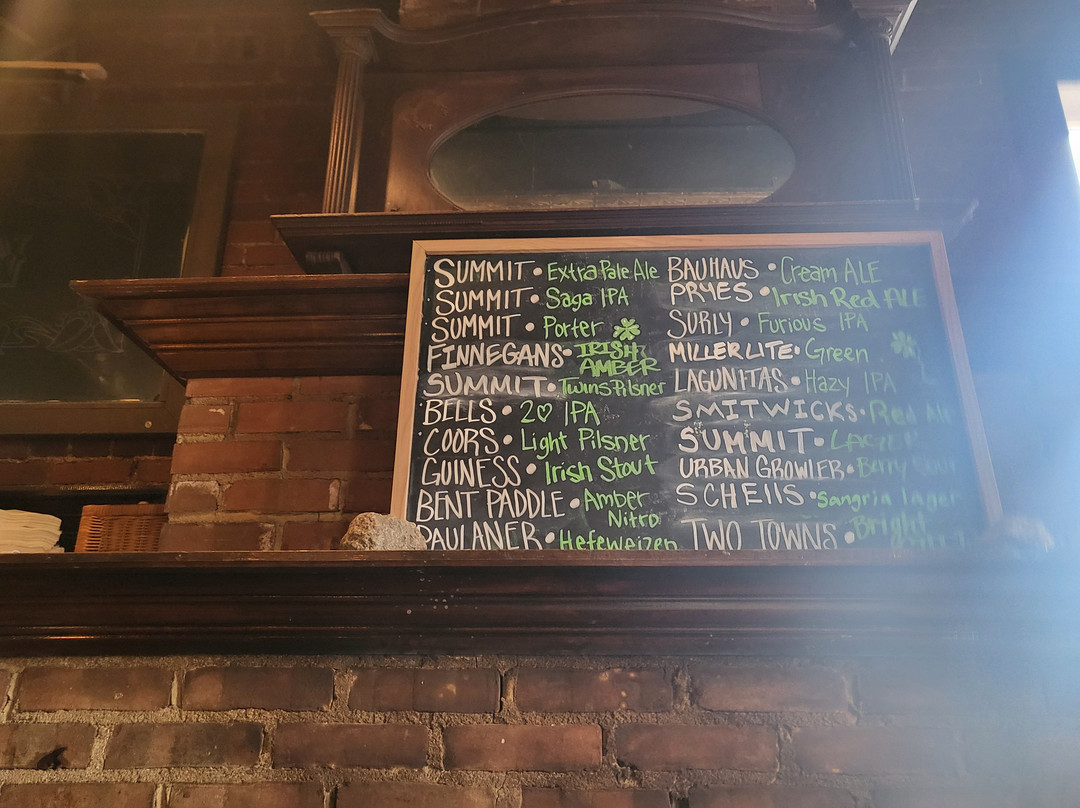 SUMMIT • Extra Pale Ale
SUMMIT • Saga IPA
SUMMIT • Porter
FINNEGANS • IRISH
AMBER
SUMMIT • Twins Pilsner
BELLS • 2♡ IPA
COORS • Light Pilsner
GUINESS • Irish Stout
BENT PADDLE • Amber
Nitro
PAULANER • Hefeweizen
BAUHAUS • Cream ALE
PRYES • Irish Red ALE
SURLY • Furious IPA
MILLER LITE • Green
LAGUNITAS • Hazy IPA
SMITWICKS • Red Ale
SUMMIT • LAGER
URBAN GROWLER • Berry
SCHEllS • Sangria lager
TWO TOWNS • Bright